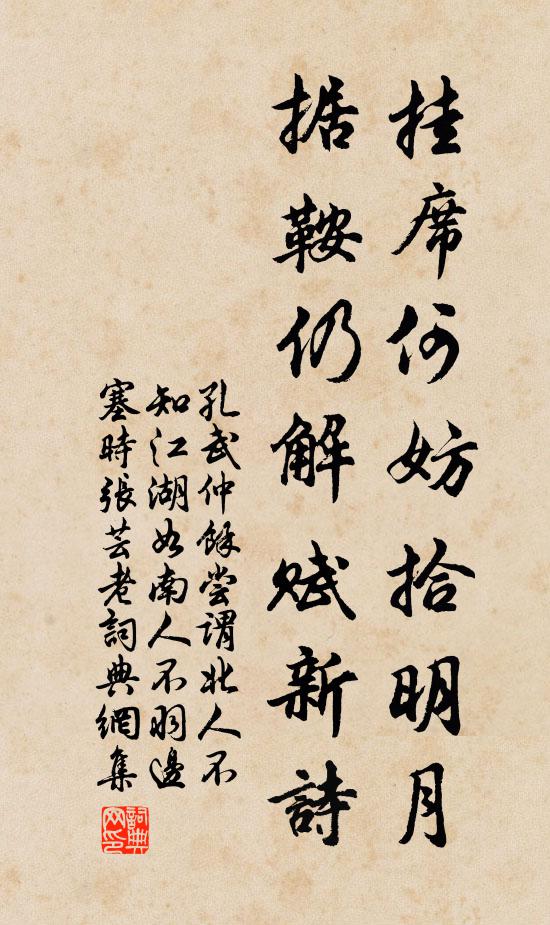 挂席何妨拾明月
据鞍仍解赋新詩
孔武仲餘嘗謂北人不
知江湖如南人不羽邊
塞時張芸老詞典網集
詞典網印